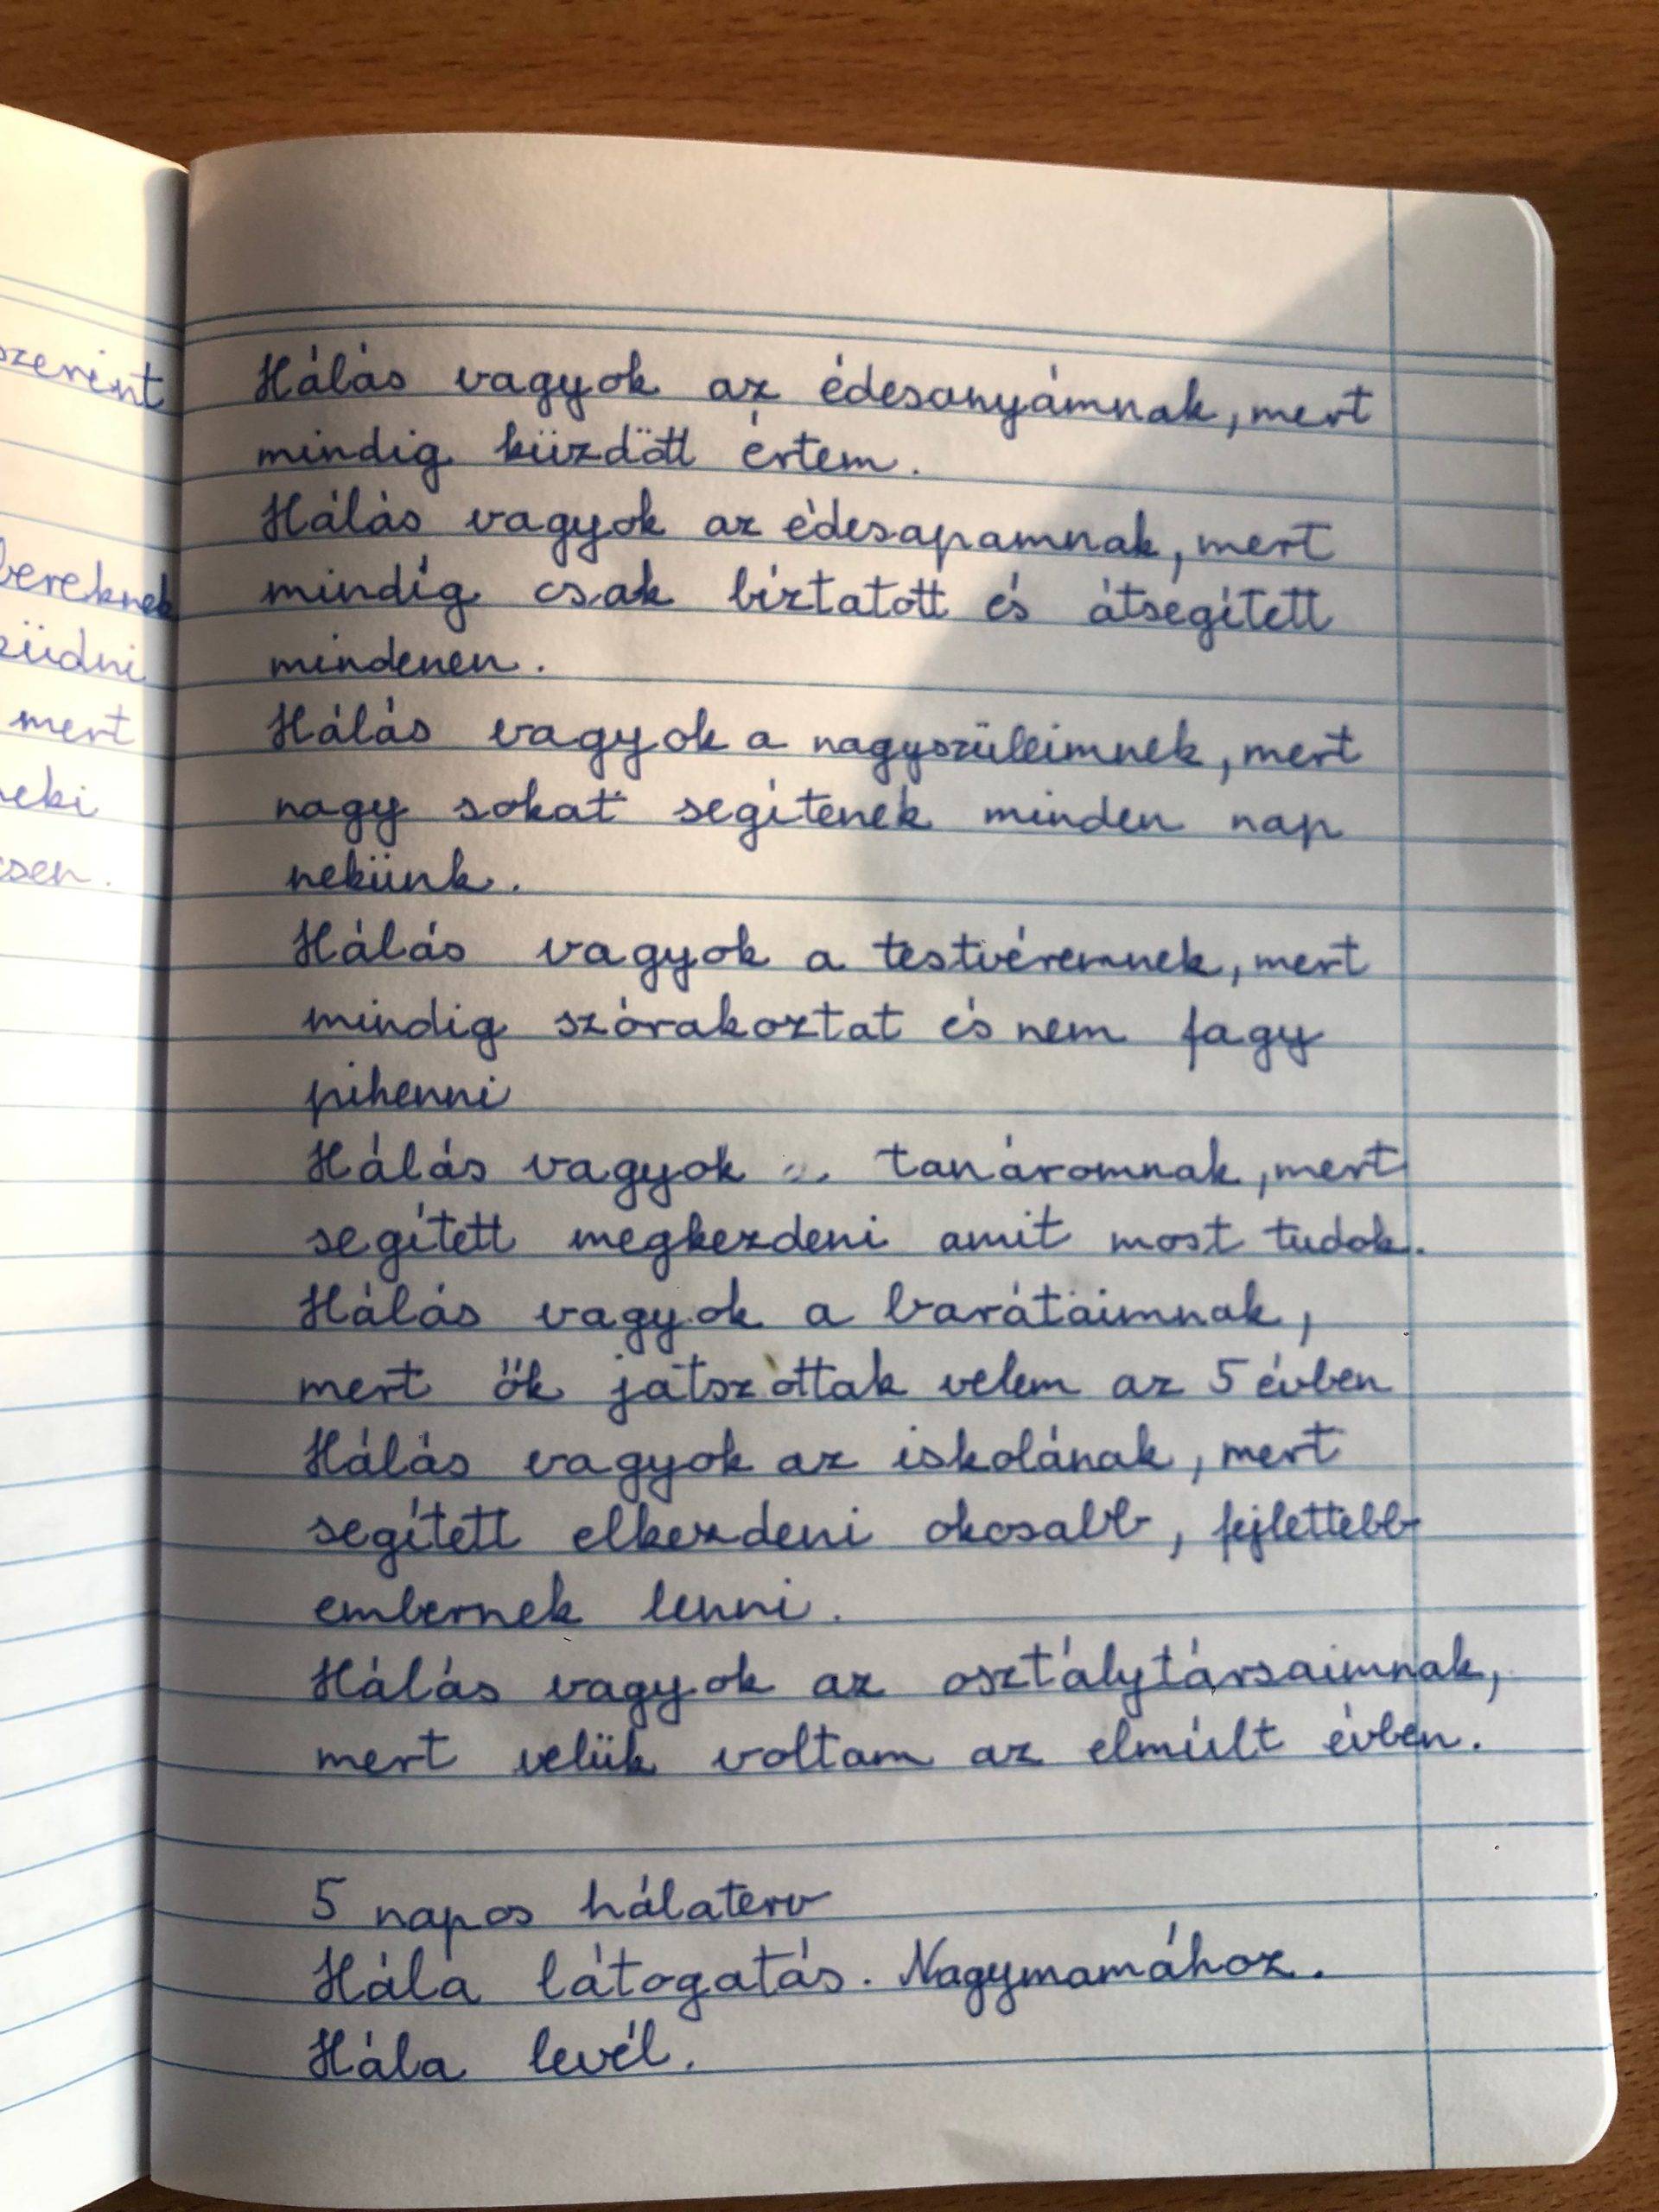 szerint
bereknek
züdni
mert
neki
csen.
Hálás vagyok az édesanyámnak, mert
mindig küzdött értem.
Hálás vagyok az édesapamnak, mert
mindig csak biztatott és átsegített
mindenen.
Hálás vagyok a nagyszüleimnek, mert
nagy sokat segítenek minden nap
nekünk.
Hálás vagyok a testvéremnek, mert
mindig szórakoztat és nem fagy
pihenni
Hálás vagyok tanáromnak, mert
segített megkezdeni amit most tudok.
Hálás vagyok a barátaimnak,
mert ők játszottak velem az 5 évben
Hálás vagyok az iskolának, mert
segített elkezdeni okosabb, fejlettebb
embernek lenni.
Hálás vagyok az osztálytársaimnak,
mert velük voltam az elmúlt évben.
5 napos hálaterv
Hála látogatás. Nagymamához.
Hála levél.